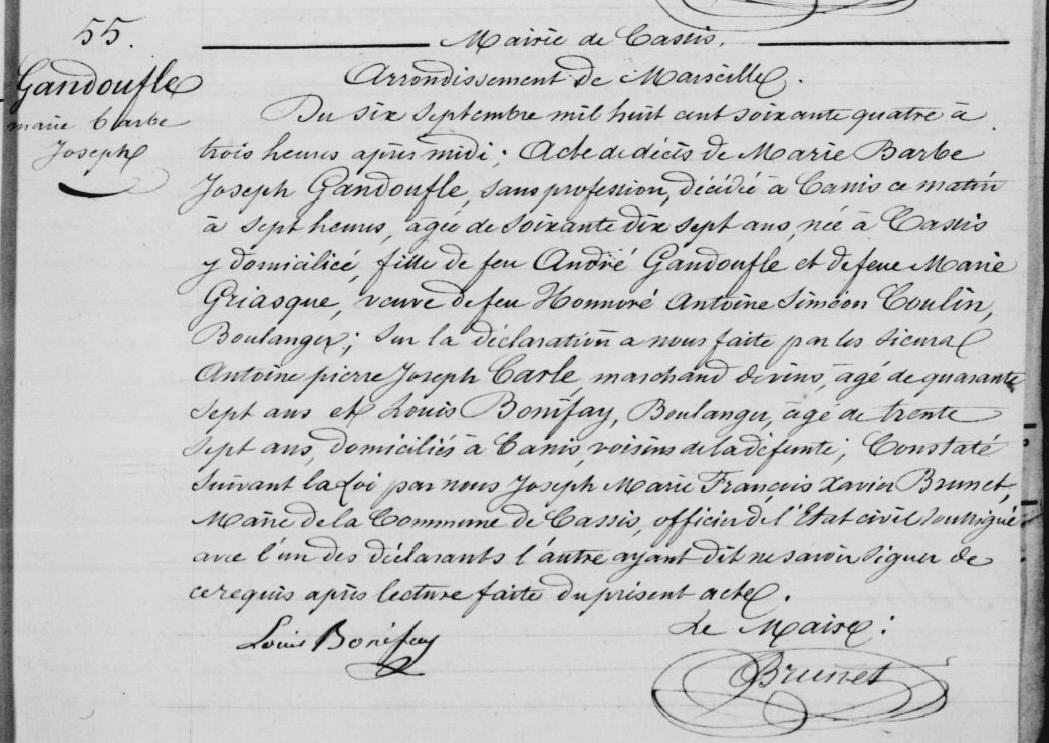 55.
Mairie de Cassis.
Gandoufle
marie barbe
Joseph
Arrondissement de Marseille.
Du six Septembre mil huit cent soixante quatre à
trois heures après midi; Acte de décès de Marie Barbe
Joseph Gandoufle, sans profession, décédée à Cassis ce matin
à Sept heures, âgée de soixante dix sept ans, née à Cassis
y domiciliée, fille de feu André Gandoufle et de feue Marie
Griasque, veuve de feu Honnoré Antoine Siméon Coulin,
Boulanger; sur la déclaration a nous faite par les sieurs
Antoine pierre Joseph Carle, marchand de vins, âgé de quarante
sept ans et Louis Bonifay, Boulanger, âgé de trente
sept ans, domiciliés à Cassis, voisins de la défunte; Constaté
Suivant la Loi par nous Joseph Marie François Xavier Brunet,
Maire de la Commune de Cassis, officier de l'Etat civil soussigné
avec l'un des déclarants l'autre ayant dit ne savoir signer de
ce requis après lecture faite du présent acte.
Le Maire:
Louis Bonifay
Brunet